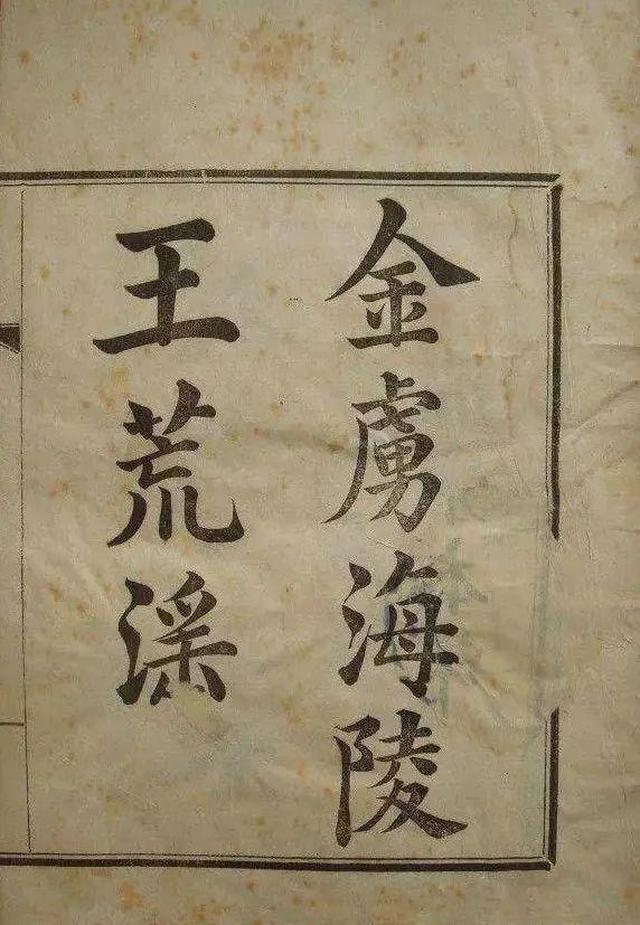 金虜海陵
王荒滛